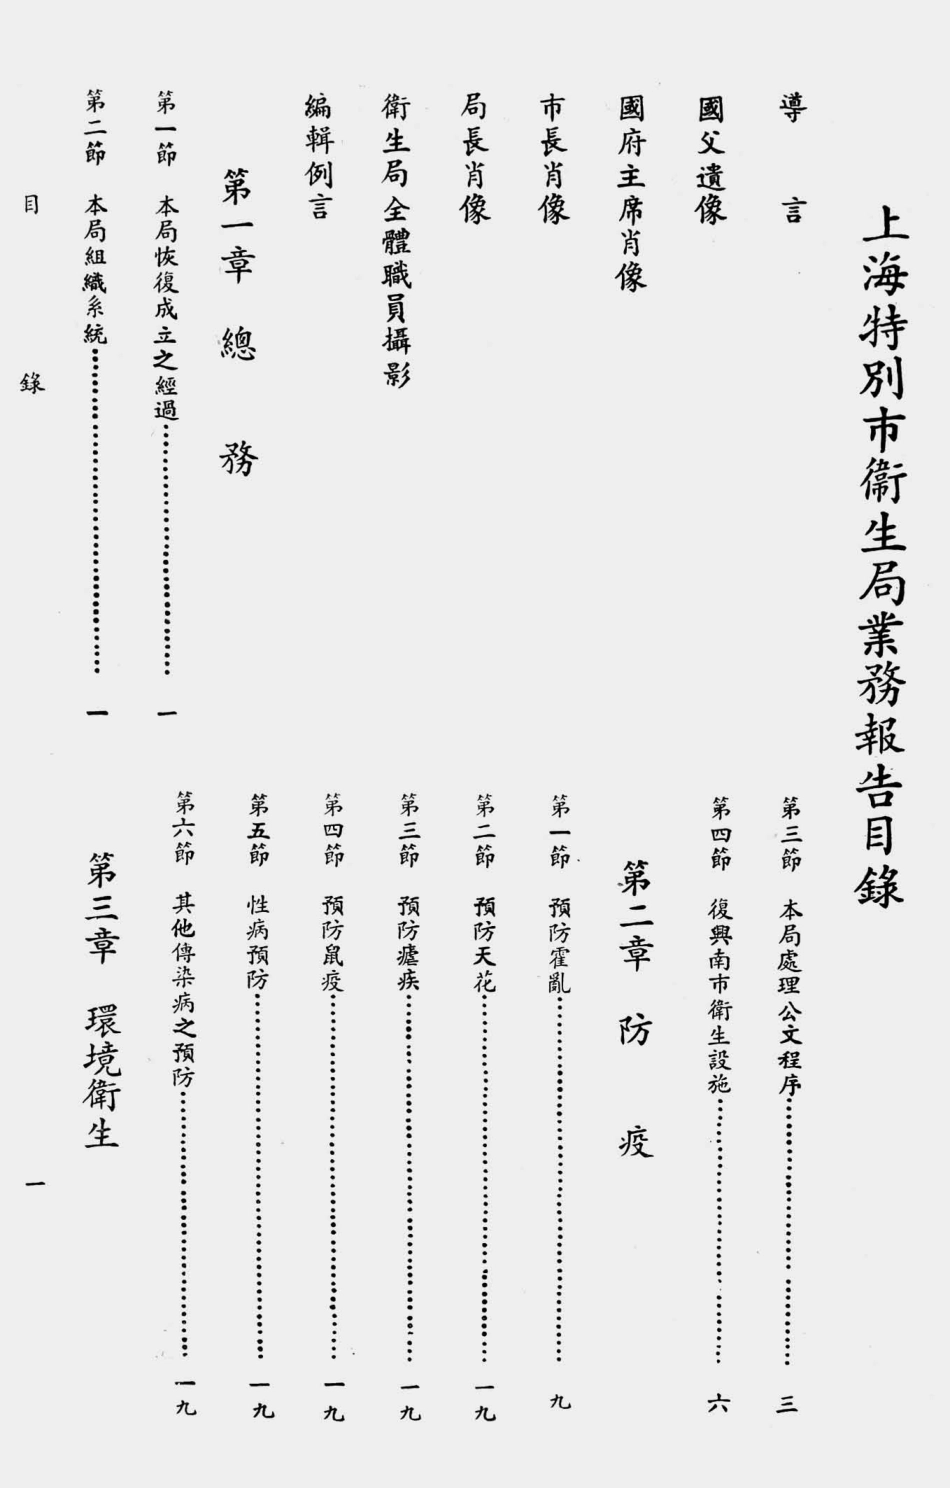 上海特別市衛生局業務報告目錄
導言
國父遺像
國府主席肖像
市長肖像
局長肖像
衛生局全體職員攝影
編輯例言
第一章 總務
第一節 本局恢復成立之經過…………一
第二節 本局組織系統…………一
第三節 本局處理公文程序…………三
第四節 復興南市衛生設施…………六
第二章 防疫
第一節 預防霍亂…………九
第二節 預防天花…………一九
第三節 預防瘧疾…………一九
第四節 預防鼠疫…………一九
第五節 性病預防…………一九
第六節 其他傳染病之預防…………一九
第三章 環境衛生
目錄 一